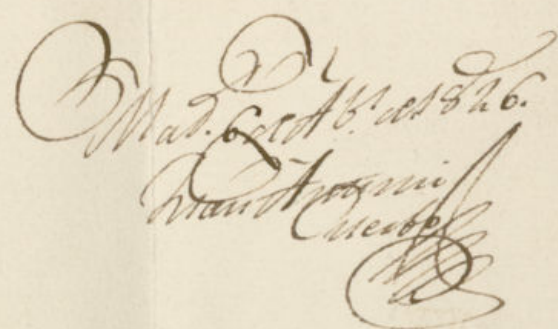 Mad. 6 de Ab.l de 1826.
Juan Antonio
Cuervo